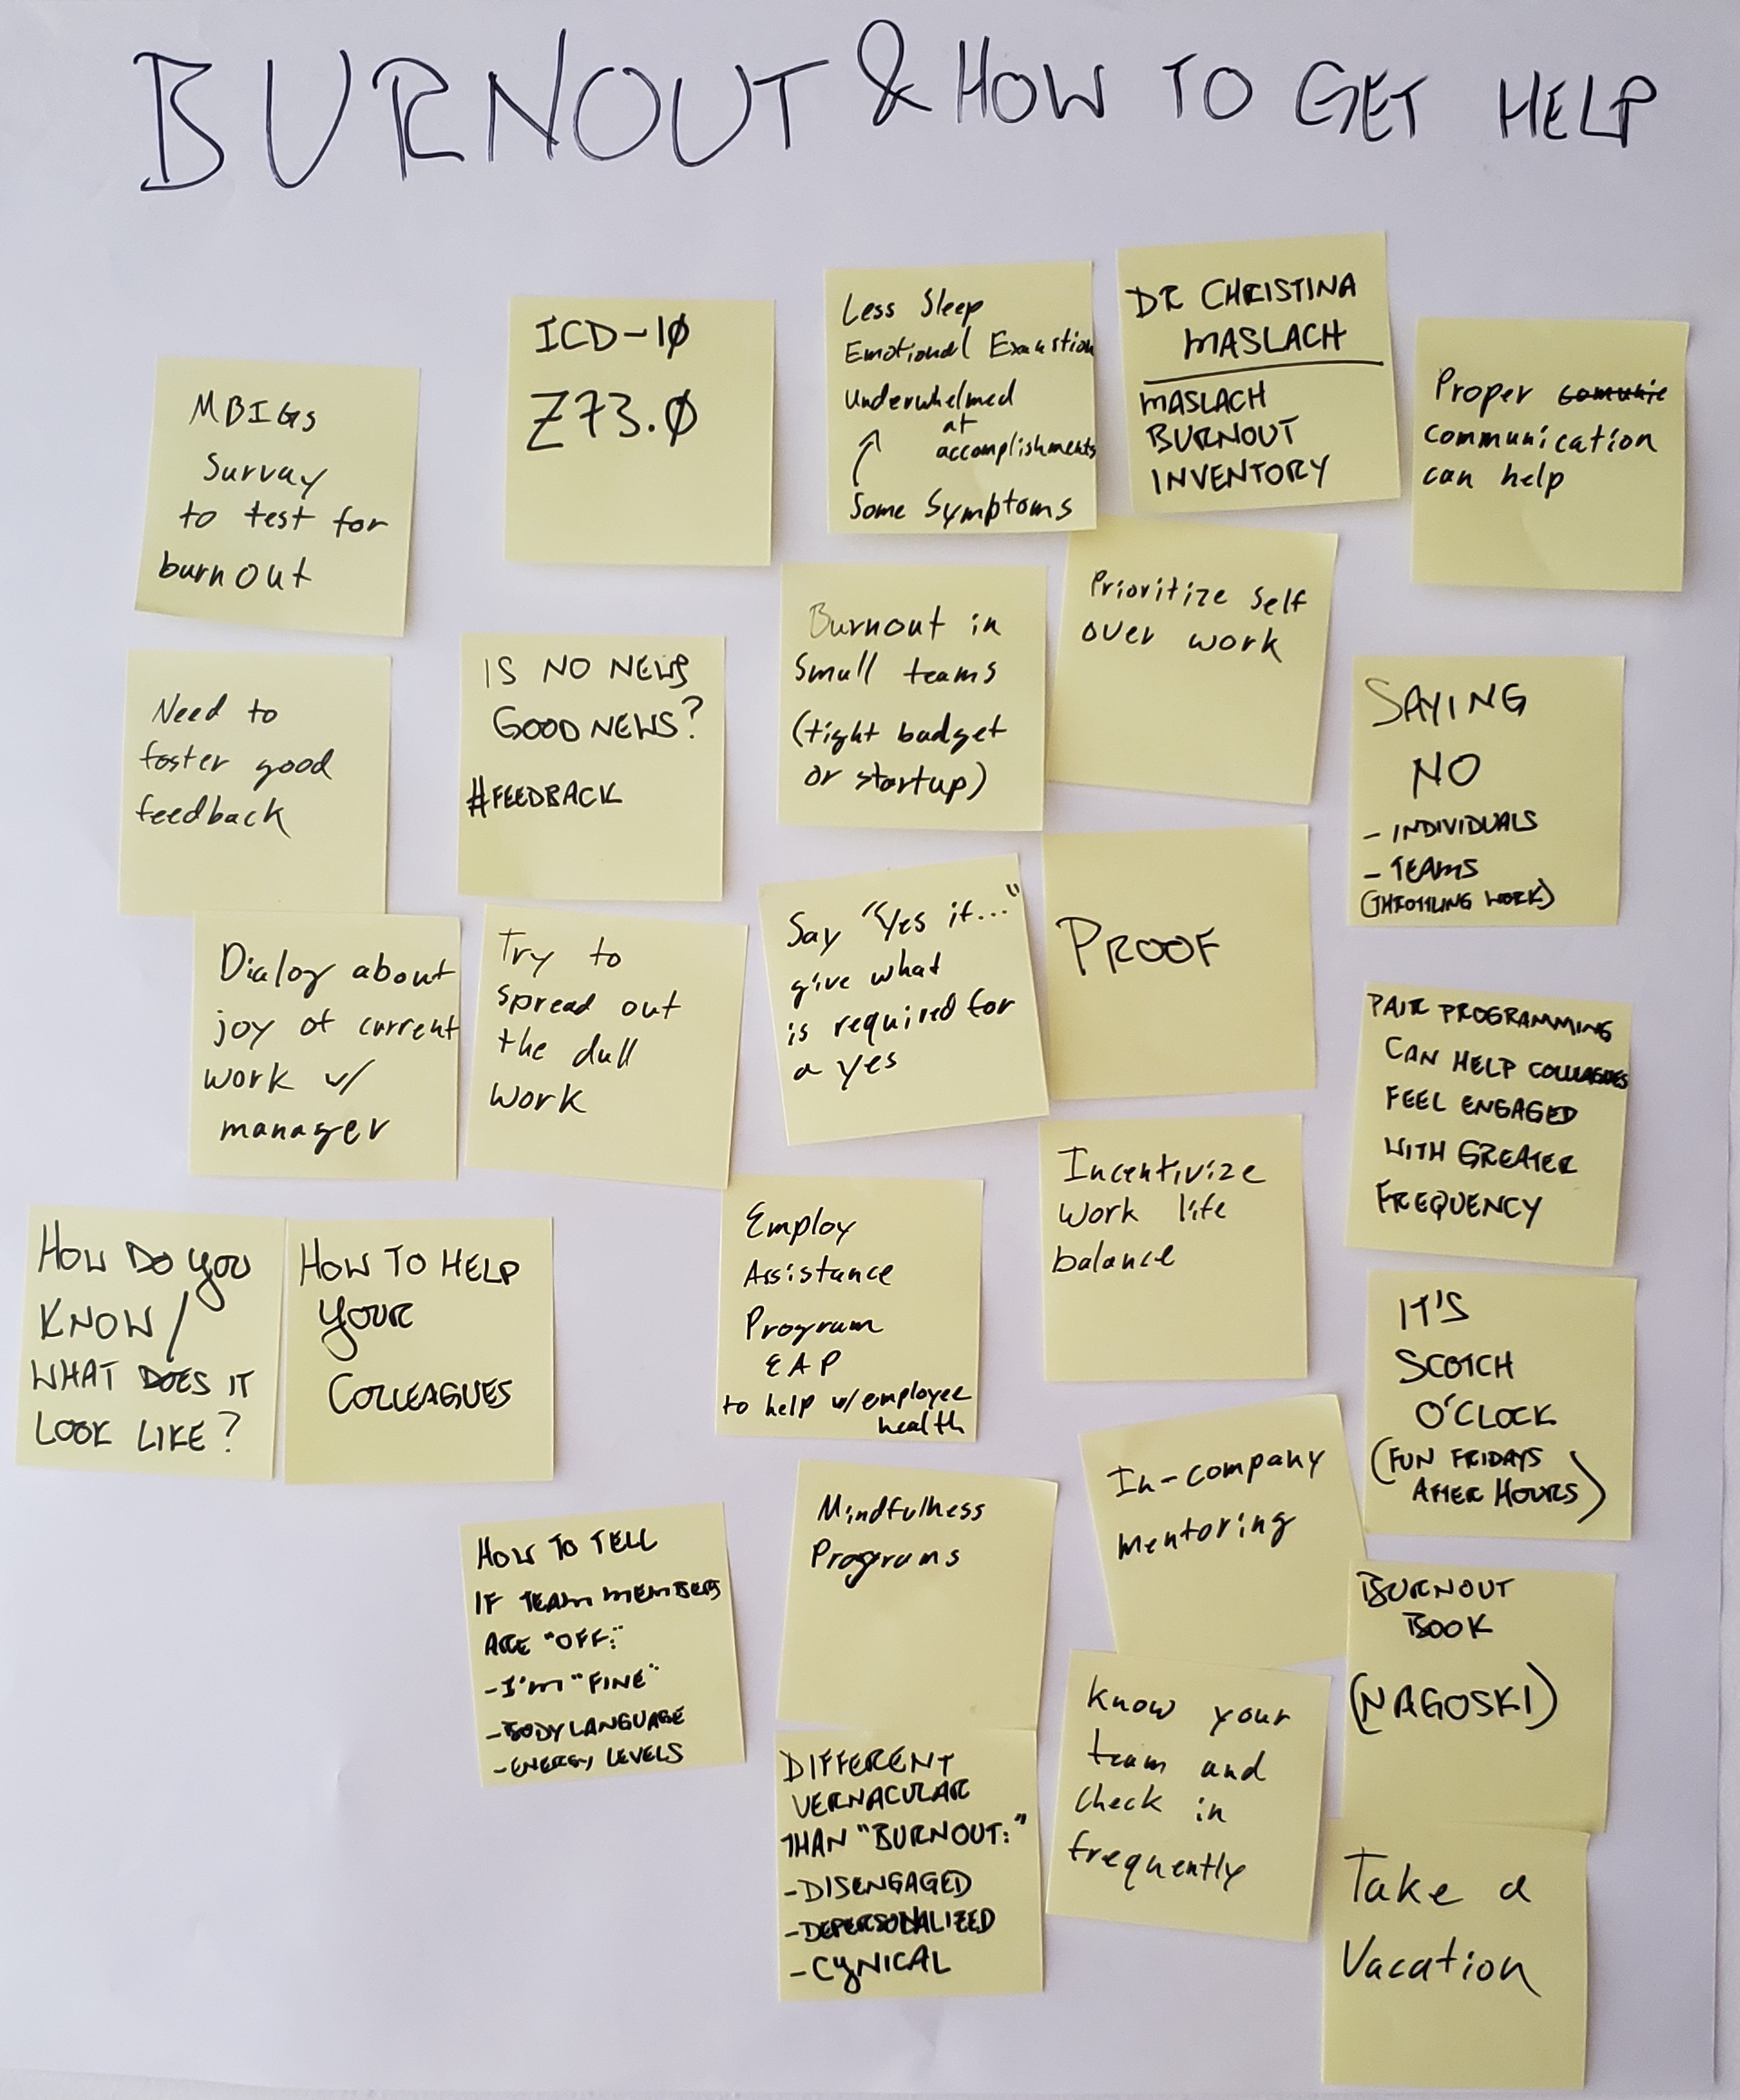 BURNOUT & HOW TO GET HELP
MBIGS
Survay
to test for
burnout
ICD-10
Z73.0
Less Sleep
Emotional Exaustion
Underwhelmed
at
accomplishments
Some Symptoms
DR CHRISTINA
MASLACH
MASLACH
BURNOUT
INVENTORY
Proper comunic
communication
can help
Need to
foster good
feedback
IS NO NEWS
GOOD NEWS?
#FEEDBACK
Burnout in
Small teams
(tight budget
or startup)
Prioritize Self
over work
SAYING
NO
- INDIVIDUALS
- TEAMS
(THROTTLING WORK)
Dialog about
joy of current
work w/
manager
Try to
spread out
the dull
work
Say "Yes if..."
give what
is required for
a yes
PROOF
PAIR PROGRAMMING
CAN HELP COLLEAGUES
FEEL ENGAGED
WITH GREATER
FREQUENCY
HOW DO YOU
KNOW/
WHAT DOES IT
LOOK LIKE?
HOW TO HELP
YOUR
COLLEAGUES
Employ
Assistance
Program
EAP
to help w/employee
health
Incentivize
Work life
balance
IT'S
SCOTCH
O'CLOCK
(FUN FRIDAYS
AFTER HOURS)
HOW TO TELL
IF TEAM MEMBERS
ARE "OFF:"
- I'M "FINE"
- BODY LANGUAGE
- ENERGY LEVELS
Mindfulness
Programs
In-company
mentoring
BURNOUT
BOOK
(NAGOSKI)
DIFFERENT
VERNACULAR
THAN "BURNOUT:"
- DISENGAGED
- DEPERSONALIZED
- CYNICAL
Know your
team and
check in
frequently
Take a
Vacation